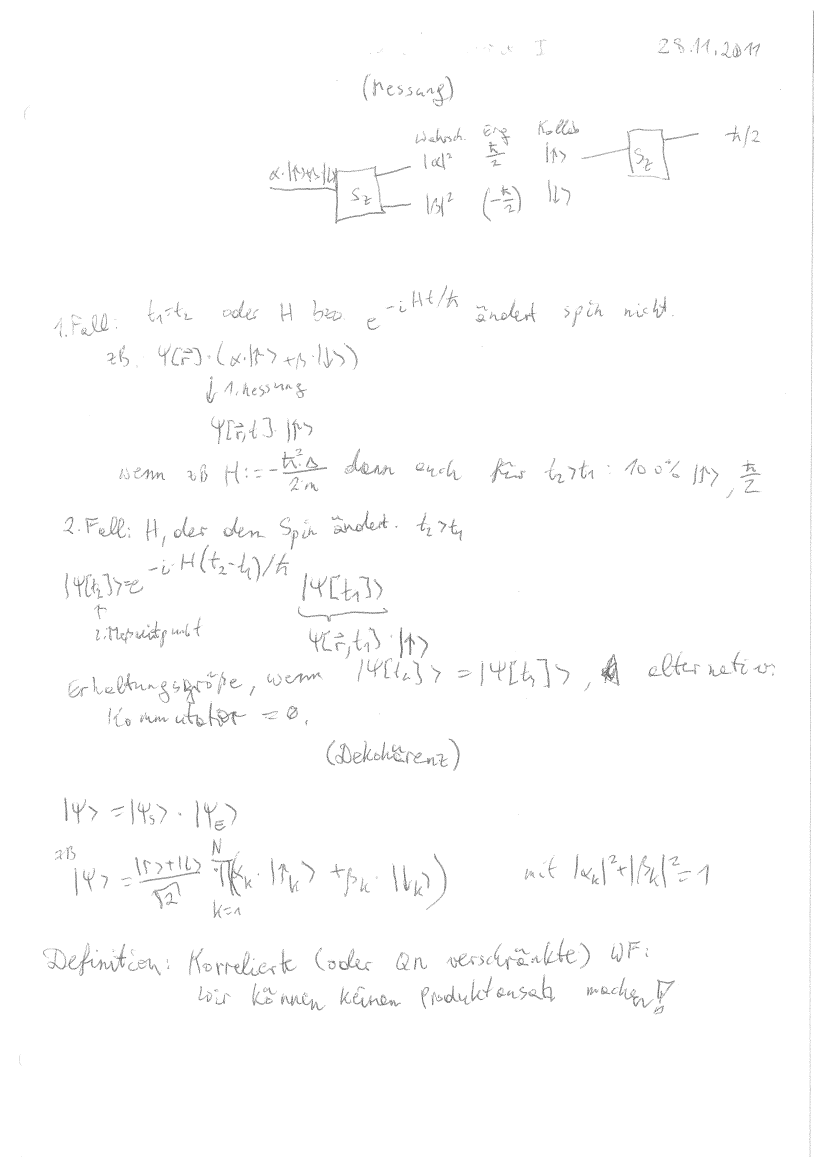 I 28.11.2011
(Messung)
Wahrsch. Erg Kollab
α·|↑>+β·|↓> S_z |α|² ħ/2 |↑> S_z ħ/2
|β|² (-ħ/2) |↓>
1. Fall: t₁=t₂ oder H bzw. e^(-iHt/ħ) ändert spin nicht.
zB. Ψ[r⃗]·(α·|↑> + β·|↓>)
↓ 1. Messung
Ψ[r⃗,t]·|↑>
wenn zB H:=-ħ²·Δ/2·m dann auch für t₂>t₁: 100% |↑>, ħ/2
2. Fall: H, der den Spin ändert. t₂>t₁
|Ψ[t₂]>=e^(-i·H(t₂-t₁)/ħ) |Ψ[t₁]>
↑
2. Meßzeitpunkt Ψ[r⃗,t₁]·|↑>
Erhaltungsgröße, wenn |Ψ[t₂]> = |Ψ[t₁]>, alternativ:
Kommutator = 0.
(Dekohärenz)
|Ψ> = |Ψ_S> · |Ψ_E>
zB |Ψ> = (|↑>+|↓>)/√2 ∏_{k=1}^{N} (α_k·|↑_k> + β_k·|↓_k>) mit |α_k|²+|β_k|²=1
Definition: Korrelierte (oder Qn verschränkte) WF:
Wir können keinen Produktansatz machen!